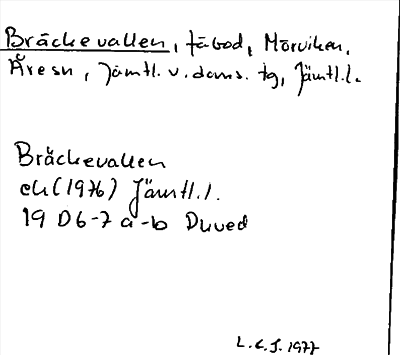 Bräckevallen, fäbod, Mörviken,
Åresn, Jämtl. v. doms. tg, Jämtl.l.
Bräckevallen
ek (1976) Jämtl.l.
19 D 6-7 a-b Duved
L.E.J. 1977